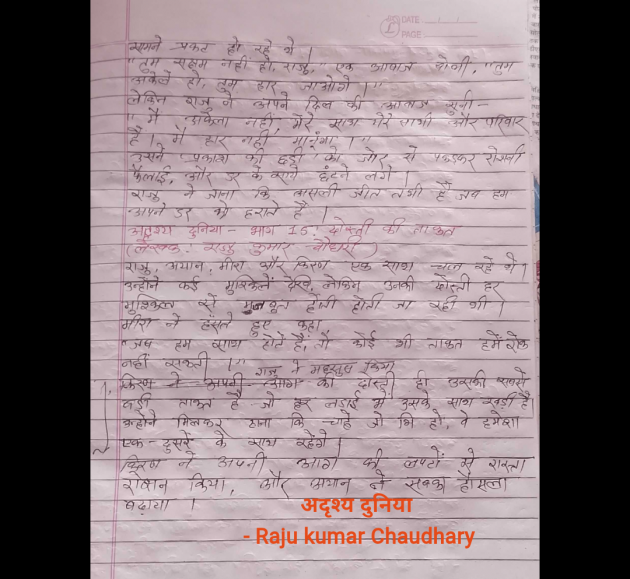 DATE
PAGE
सामने प्रकट हो रहे थे।
"तुम सक्षम नहीं हो, राजु," एक आवाज बोली, "तुम
अकेले हो, तुम हार जाओगे।"
लेकिन राजु ने अपने दिल की आवाज सुनी-
"मैं अकेला नहीं, मेरे साथ मेरे साथी और परिवार
हैं। मैं हार नहीं मानूंगा।"
उसने प्रकाश की छड़ी को जोर से पकड़कर रोशनी
फैलाई, और डर के साये हटने लगे।
राजु ने जाना कि असली जीत तभी है जब हम
अपने डर को हराते हैं।
अदृश्य दुनिया - भाग 15: दोस्ती की ताकत
(लेखक: राजु कुमार चौधरी)
राजु, अयान, मीरा और किरण एक साथ चल रहे थे।
उन्होंने कई मुश्किलें देखि, लेकिन उनकी दोस्ती हर
मुश्किल से मजबूत होती जा रही थी।
मीरा ने हंसते हुए कहा,
"जब हम साथ होते हैं, तो कोई भी ताकत हमें रोक
नहीं सकती।" राजु ने महसूस किया
कि दोस्ती ही उसकी सबसे
बड़ी ताकत है जो हर लड़ाई में उसके साथ खड़ी है।
उन्होंने मिलकर ठाना कि चाहे जो भि हो, वे हमेशा
एक-दुसरे के साथ रहेंगे।
किरण ने अपनी आग की लपटों से रास्ता
रोशन किया, और अयान ने सबका हौसला
बढ़ाया।
अदृश्य दुनिया
- Raju kumar Chaudhary